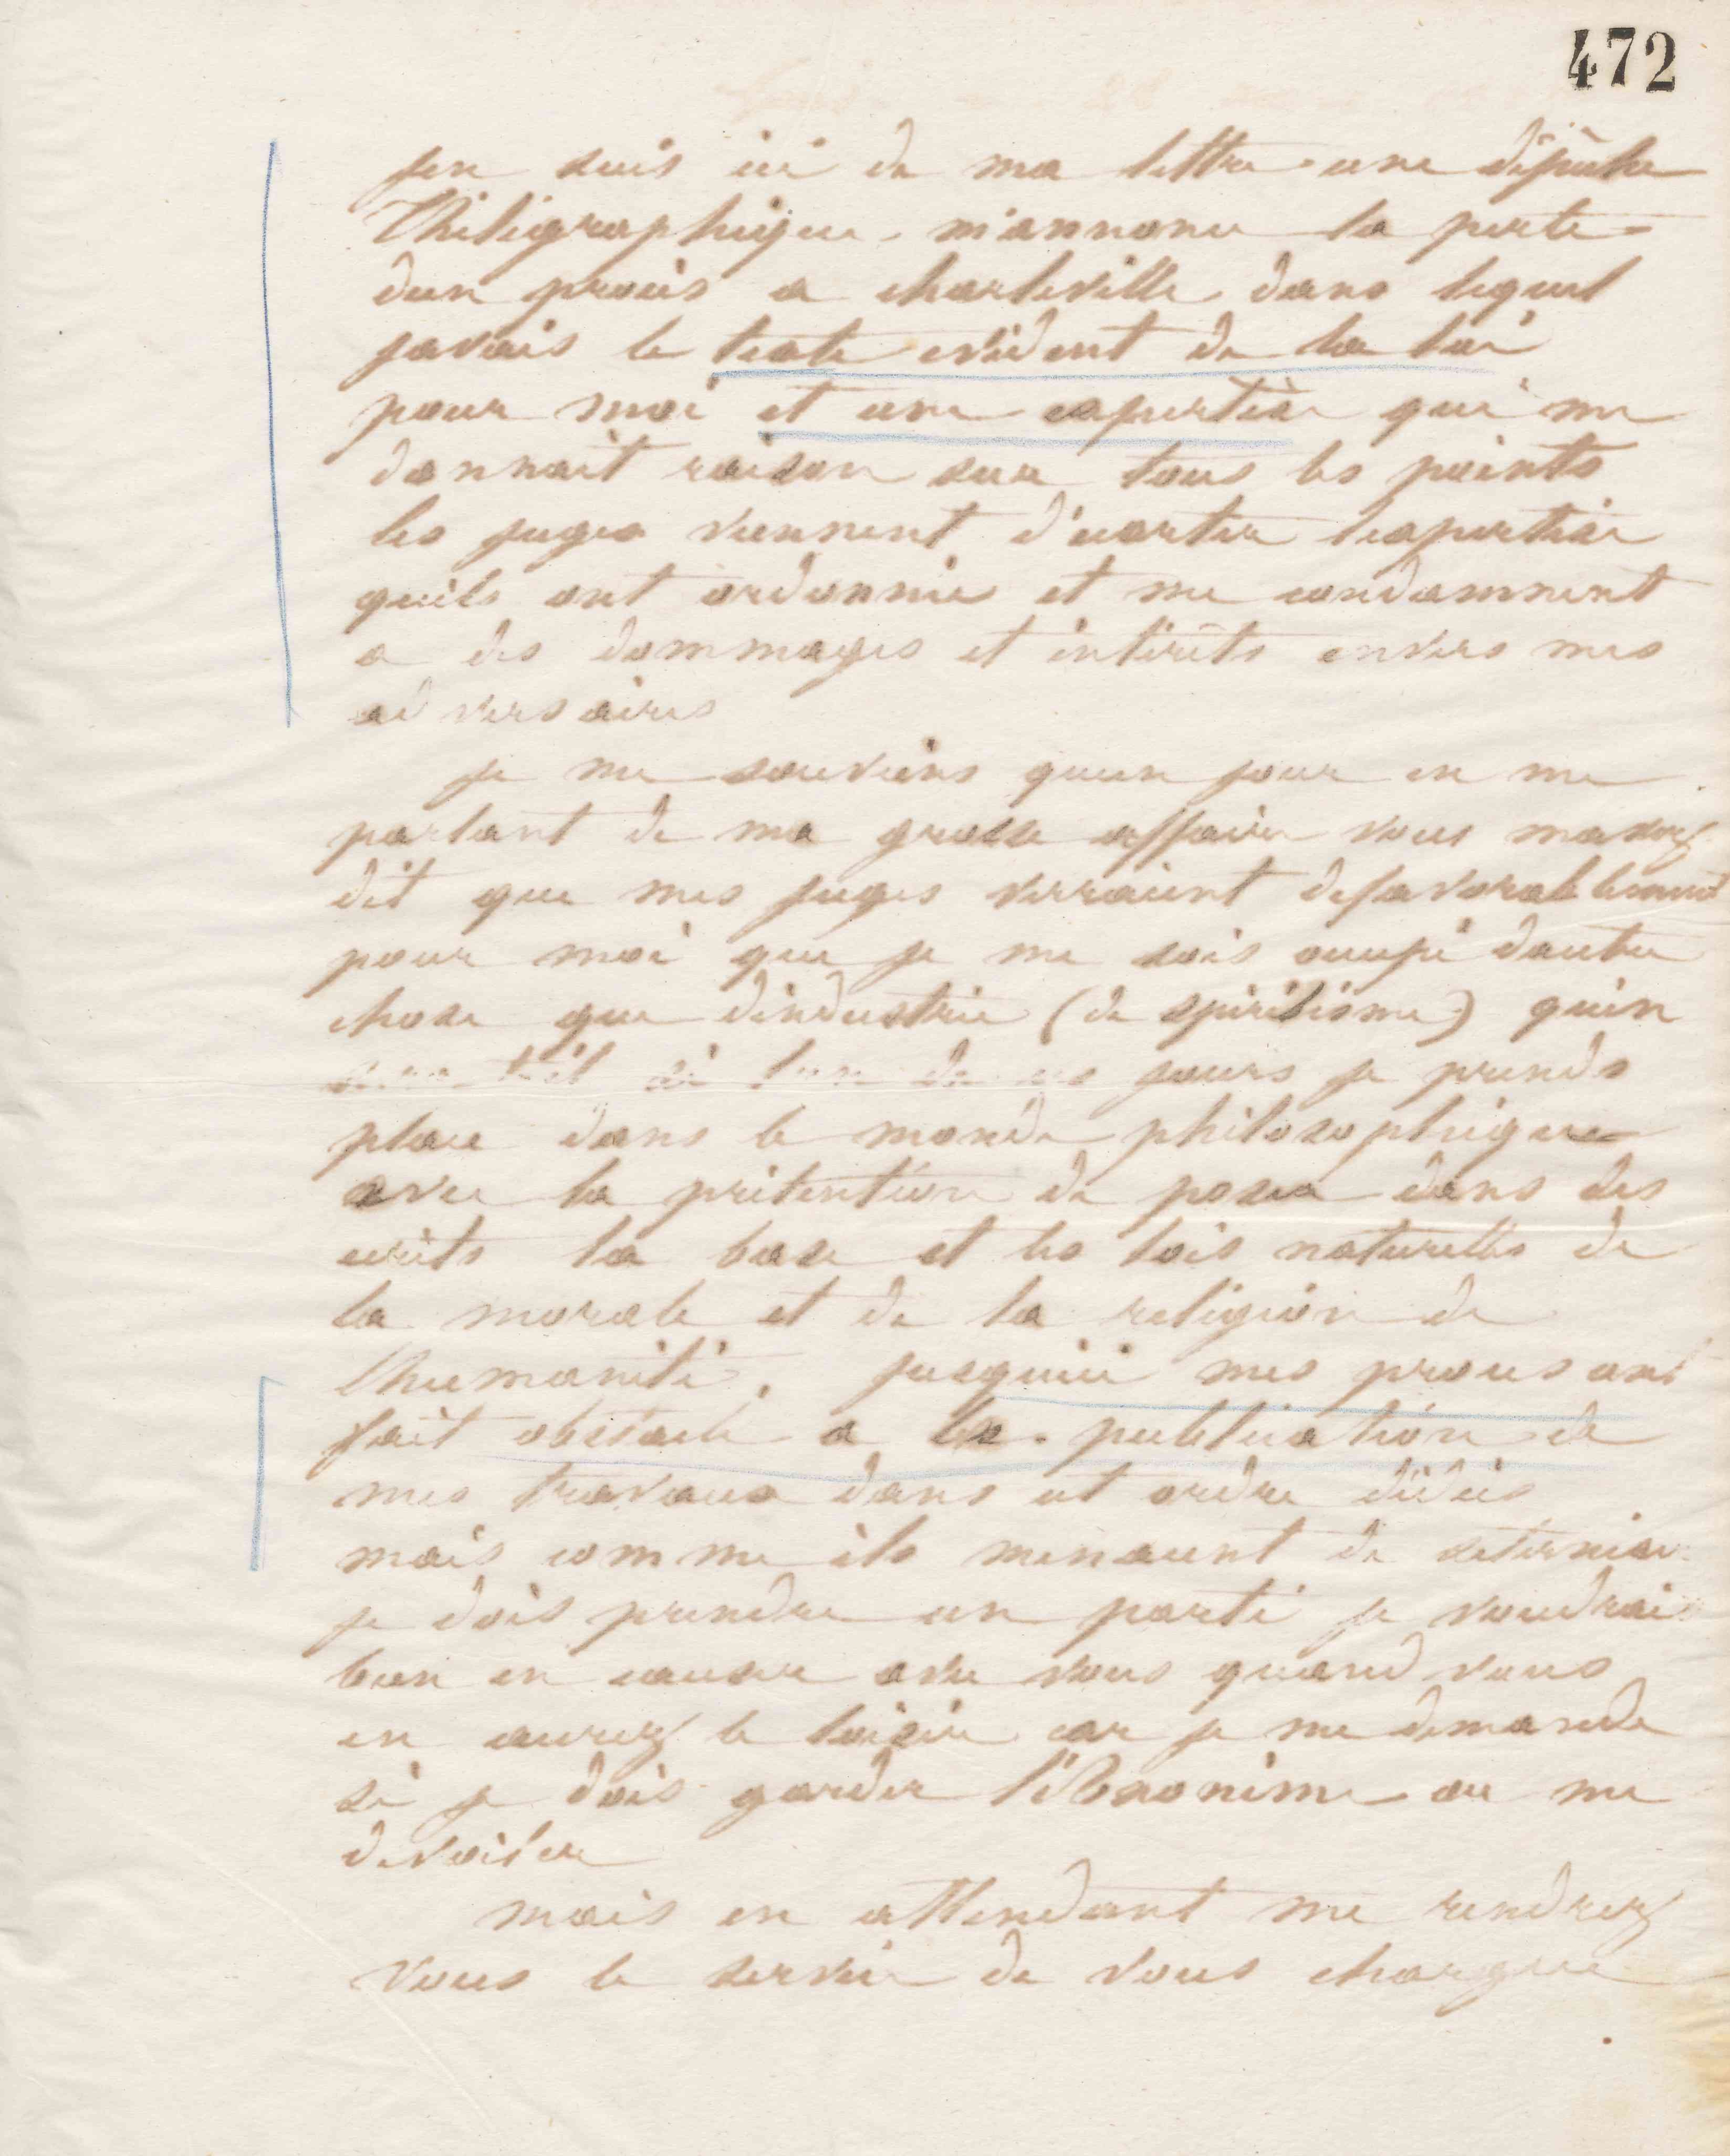 472
jen suis ici de ma lettre une dépêche
Théligraphique m'annonce la perte
dun procès a charleville dans lequel
javais le texte evident de la loi
pour moi et une expertise qui me
donnait raison sur tous les points
les juges viennent d'ecarter lexpertise
quils ont ordonnée et me condamnent
a des dommages et intérêts envers mes
adversaires
je me souviens quun jour en me
parlant de ma grosse affaire vous mavez
dit que mes juges verraient defavorablement
pour moi que je me sois occupé dautre
chose que dindustrie (de spiritisme) quen
sera til si lun de ces jours je prends
place dans le monde philosophique
avec la prétention de poser dans des
ecrits la base et les lois naturelles de
la morale et de la religion de
lhumanité. jusquici mes proces ont
fait obstacle a la publication de
mes travaux dans cet ordre didées
mais comme ils menacent de seterniser
je dois prendre un parti je voudrais
bien en causer avec vous quand vous
en aurez le loisir car je me demande
si je dois garder
devoiler
mais en attendant me rendrez
vous le service de vous charger